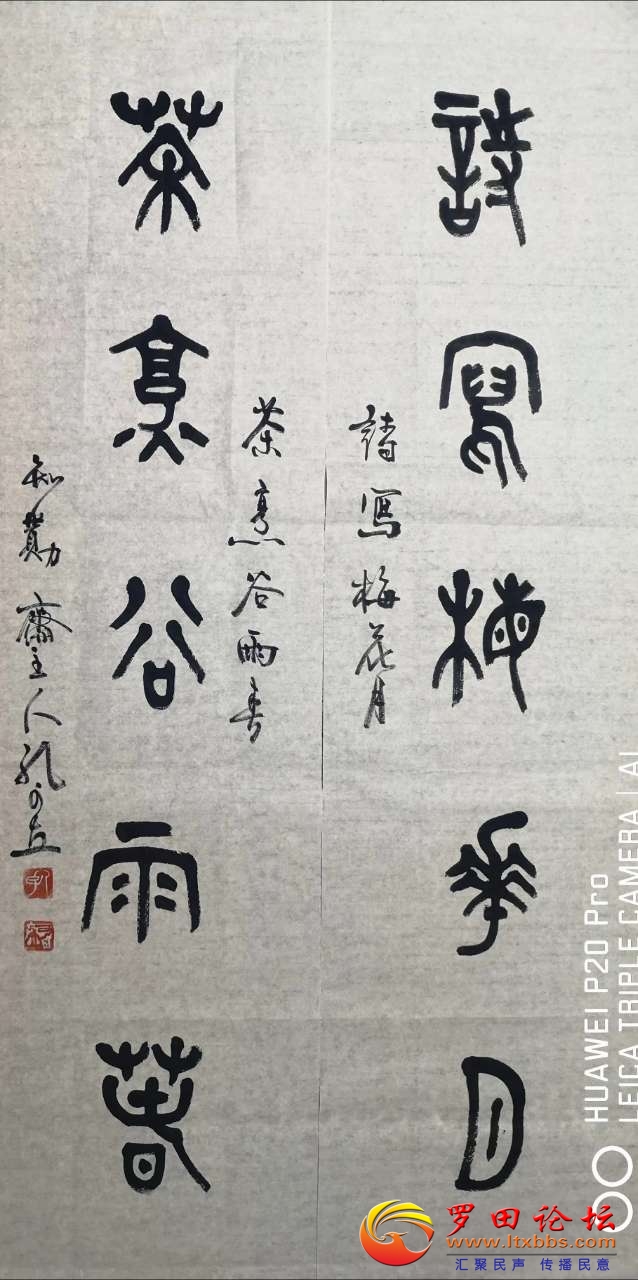 詩寫梅華月
詩寫梅花月
茶烹谷雨春
茶烹谷雨春
齋主人孔
HUAWEI P20 Pro
LEICA TRIPLE CAMERA | AI
罗田论坛
www.ltxbbs.com
汇聚民声 传播民意